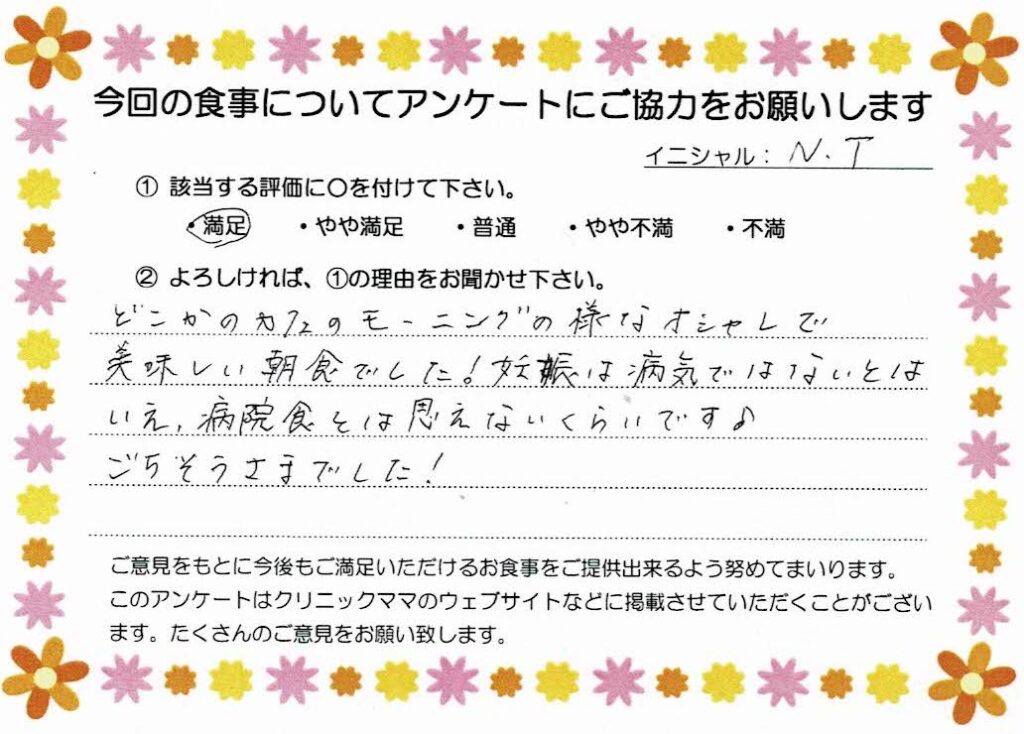 今回の食事についてアンケートにご協力をお願いします
イニシャル： N.T
① 該当する評価に○を付けて下さい。
・満足 ・やや満足 ・普通 ・やや不満 ・不満
② よろしければ、①の理由をお聞かせ下さい。
どこかのカフェのモーニングの様なオシャレで
美味しい朝食でした！妊娠は病気ではないとは
いえ、病院食とは思えないくらいです♪
ごちそうさまでした！
ご意見をもとに今後もご満足いただけるお食事をご提供出来るよう努めてまいります。
このアンケートはクリニックママのウェブサイトなどに掲載させていただくことがござい
ます。たくさんのご意見をお願い致します。